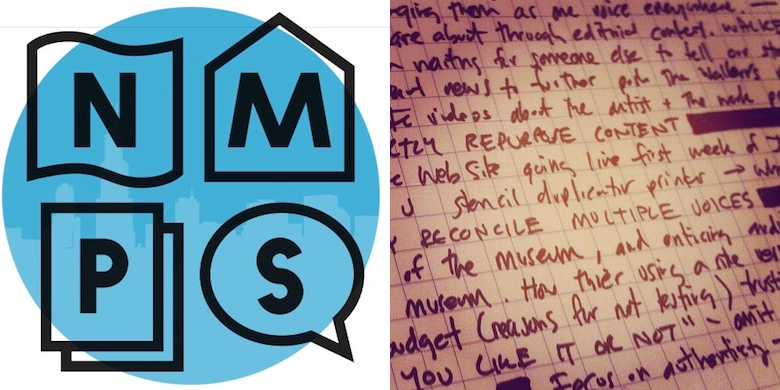 N M
P S
them as one voice everywhere
are about through editorial content.
waiting for someone else to tell our
and news to further push the Walker's
videos about the artist + the work
REPURPOSE CONTENT
web site going live first week of
stencil duplicator printer → 
RECONCILE MULTIPLE VOICES
of the museum, and enticing
museum. How they're using a site
budget (reasons for not testing) trust
YOU LIKE IT OR NOT" -
Focus on authenticity